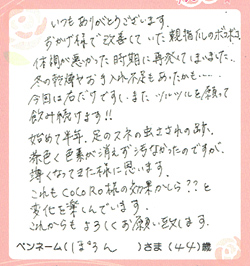 いつもありがとうございます。
おかげ様で改善していた親指だしのボコボコ
体調が悪かった時期に再発してしまいました。
冬の乾燥やお手入れ不足もあったかも・・・
今回は右だけですし、またツルツルを願って
飲み続けます!!
始めて半年、足のスネの虫さされの跡、
茶色く色素が消えず汚なかったのですが、
薄くなってきた様に思います。
これもCOCORO様の効果かしら??と
変化を楽しんでいます。
これからもよろしくお願い致します。
ペンネーム( )さま(44)歳